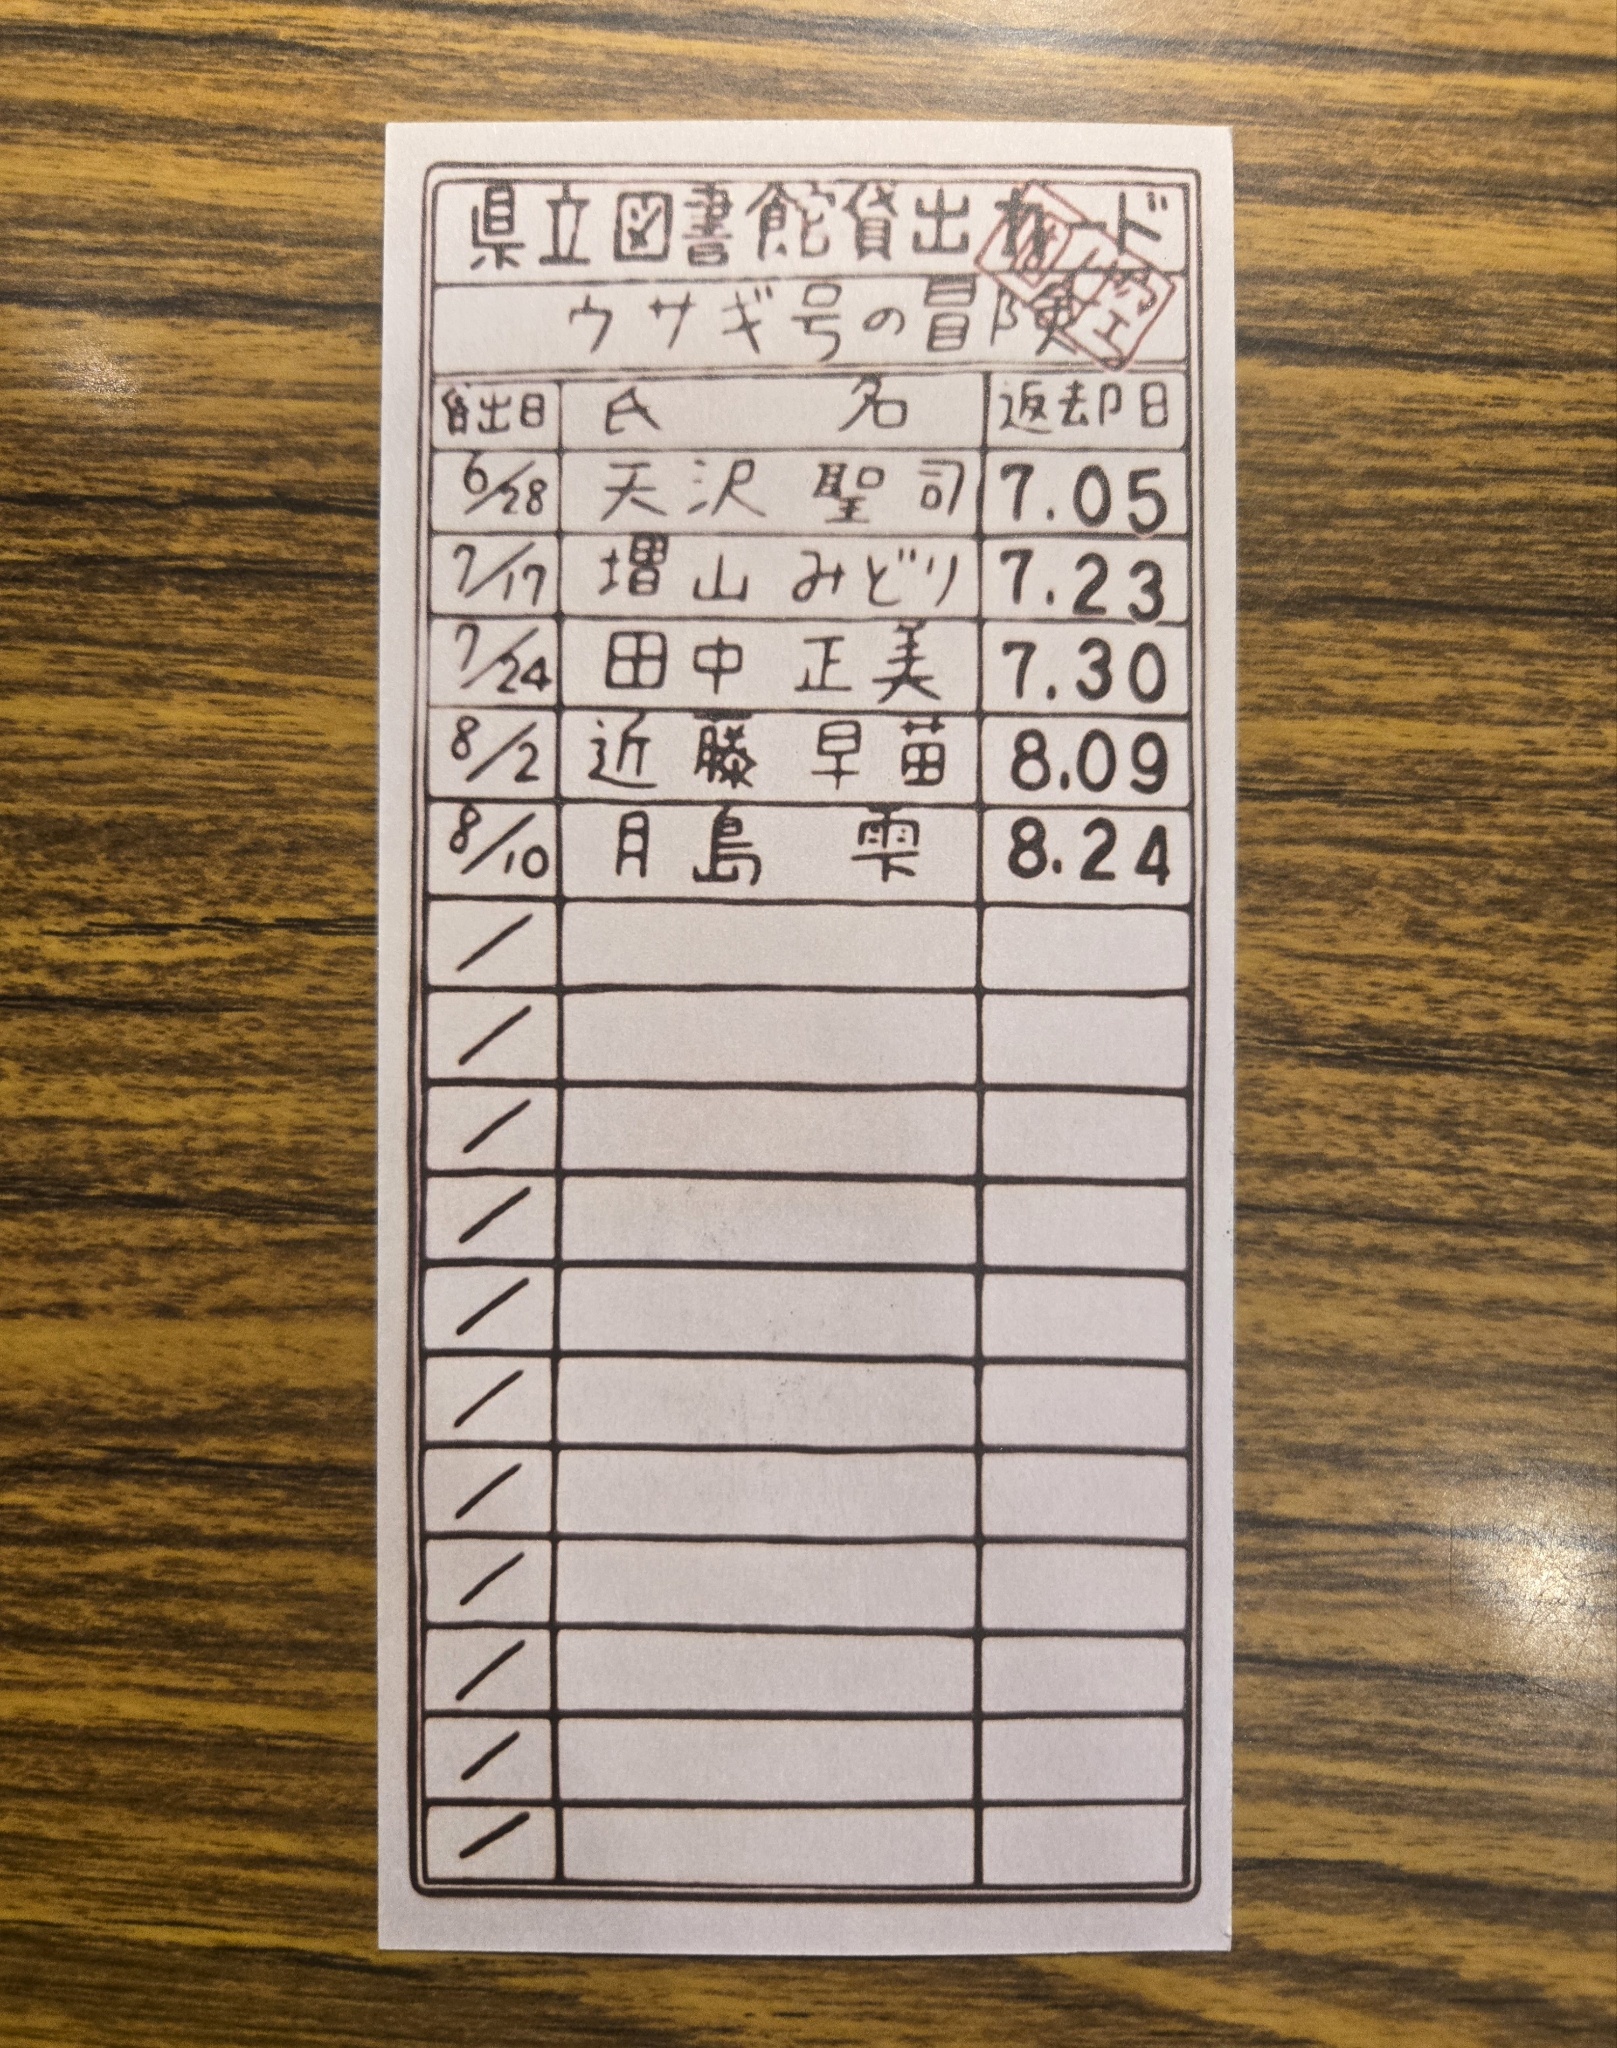 県立図書館貸出カード
ウサギ号の冒険
貸出日 氏名 返却日
6/28 天沢 聖司 7.05
7/17 増山 みどり 7.23
7/24 田中 正美 7.30
8/2 近藤 早苗 8.09
8/10 月島 雫 8.24
/
/
/
/
/
/
/
/
/
/
/